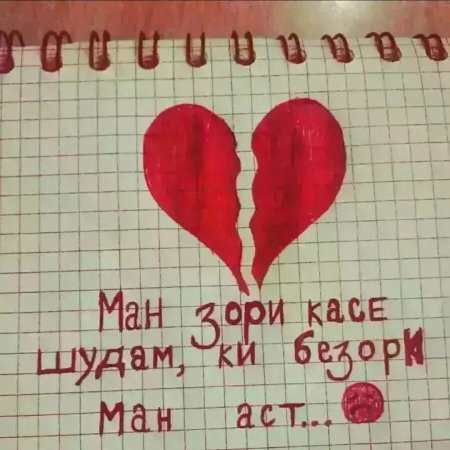 Ман зори касе
шудам, ки безори
ман аст...